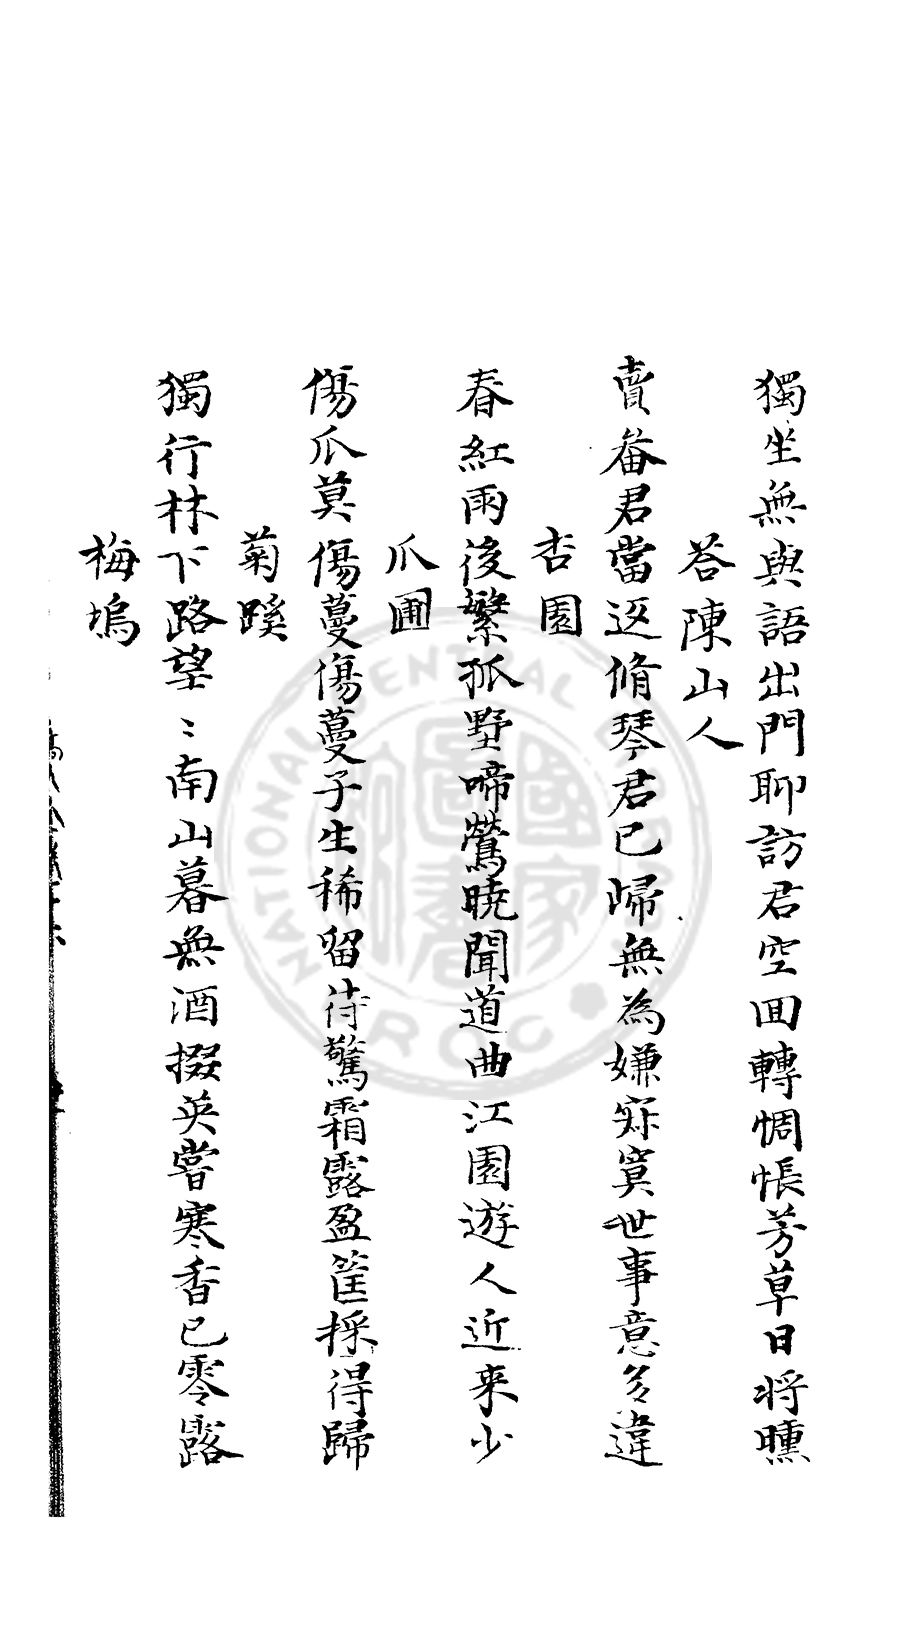 獨坐無與語出門聊訪君空囬轉惆悵芳草日将曛
荅陳山人
賣畚君當返脩琴君已歸無為嫌寂寞世事意多違
杏園
春紅雨後繁孤墅啼鶯曉聞道曲江園遊人近来少
瓜圃
傷瓜莫傷蔓傷蔓子生稀留待驚霜露盈筐採得歸
菊蹊
獨行林下路望〻南山暮無酒掇英嘗寒香已零露
梅塢
NATIONAL CENTRAL
ROC
國家圖書